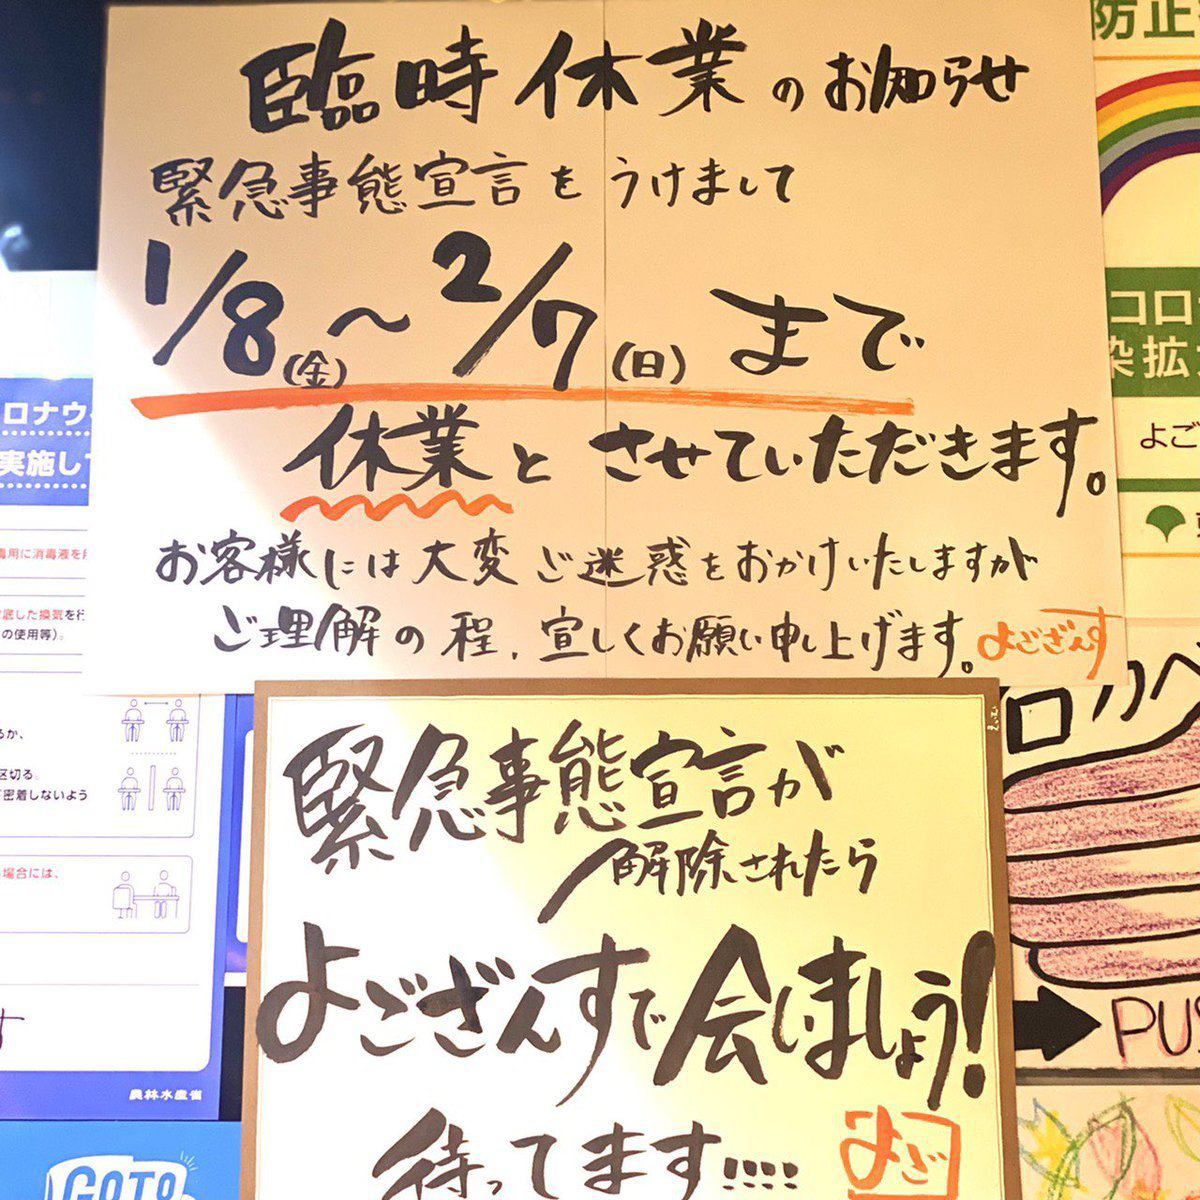 臨時休業のお知らせ
緊急事態宣言をうけまして
1/8(金)〜2/7(日)まで
休業とさせていただきます。
お客様には大変ご迷惑をおかけいたしますが
ご理解の程、宜しくお願い申し上げます。よござんす
緊急事態宣言が
解除されたら
よござんすで会いましょう!
待ってます!!!!
よござ
ロナウ
実施して
毒用に消毒液を
底した換気を行
の使用等)。
るか、
区切る。
密着しないよう
場合には、
す
農林水産省
GOTO
防止
コロ
染拡
よご
ロカベ
PUS